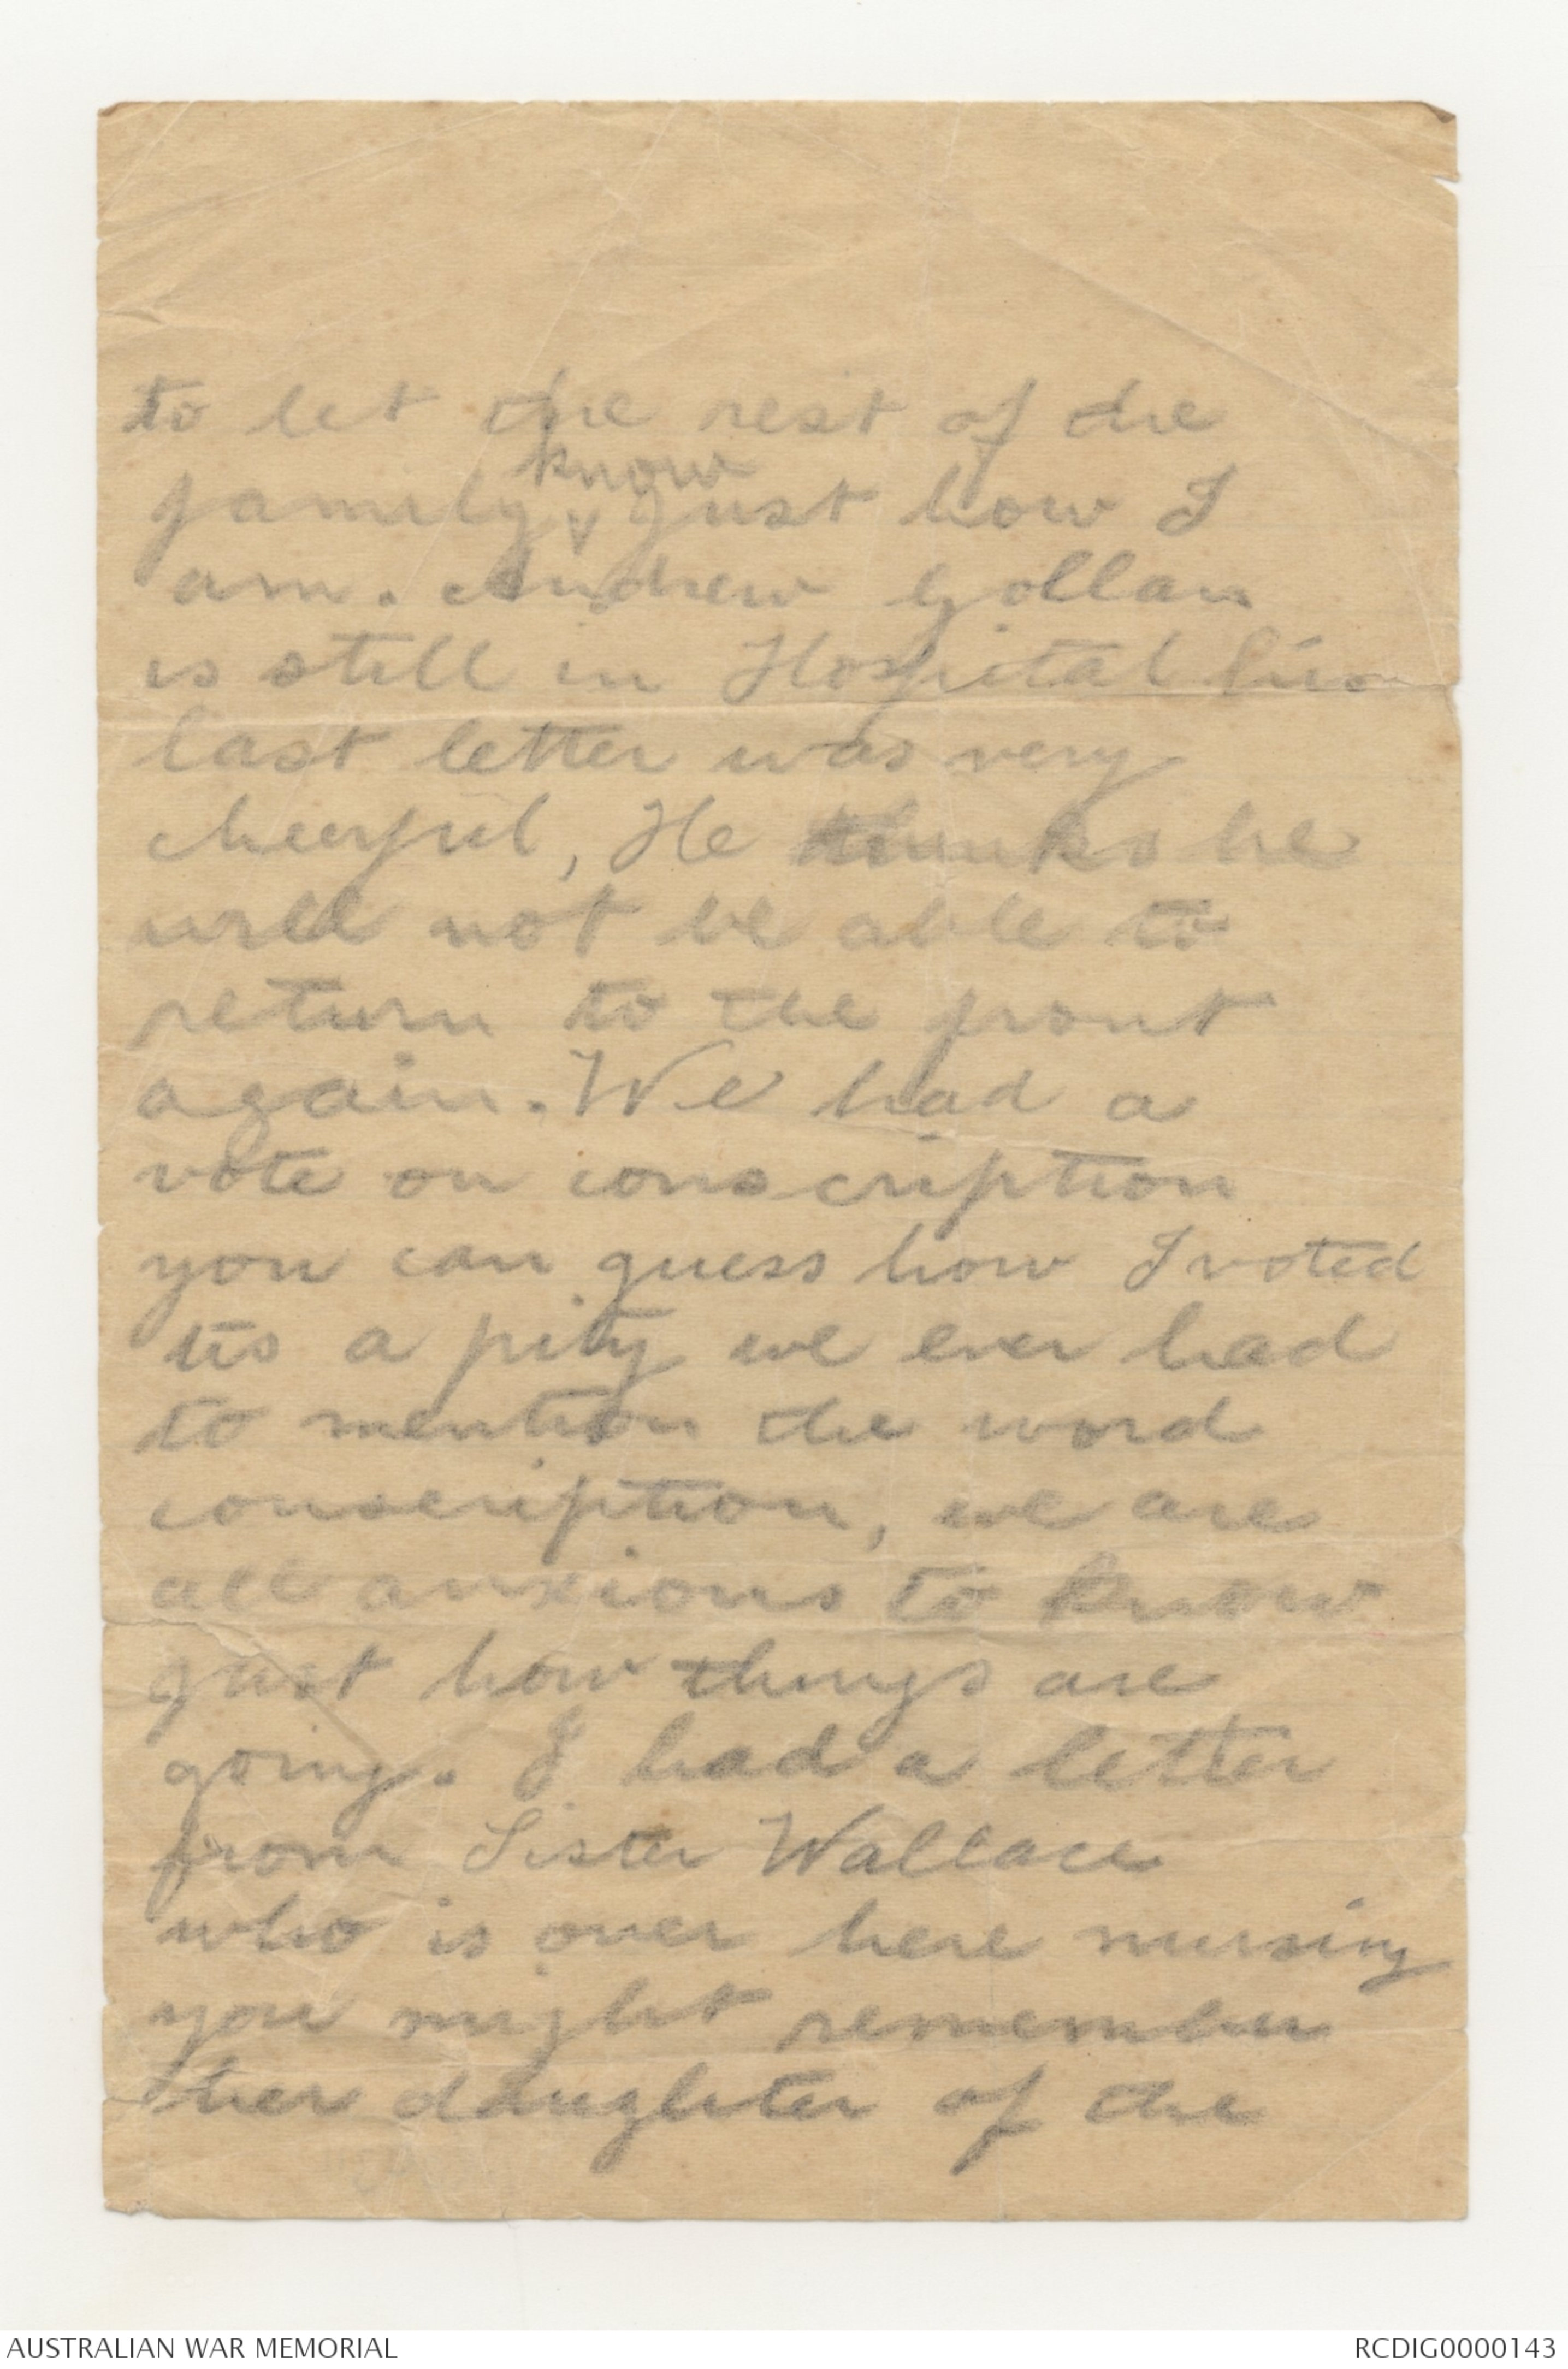 to let the rest of the
family know just how I
am. Andrew Gollan
is still in Hospital his
last letter was very
cheerful, He thinks he
will not be able to
return to the front
again. We had a
vote on conscription
you can guess how I voted
its a pity we ever had
to mention the word
conscription, we are
all anxious to know
just how things are
going. I had a letter
from Sister Wallace
who is over here nursing
you might remember
her daughter of the
AUSTRALIAN WAR MEMORIAL
RCDIG0000143